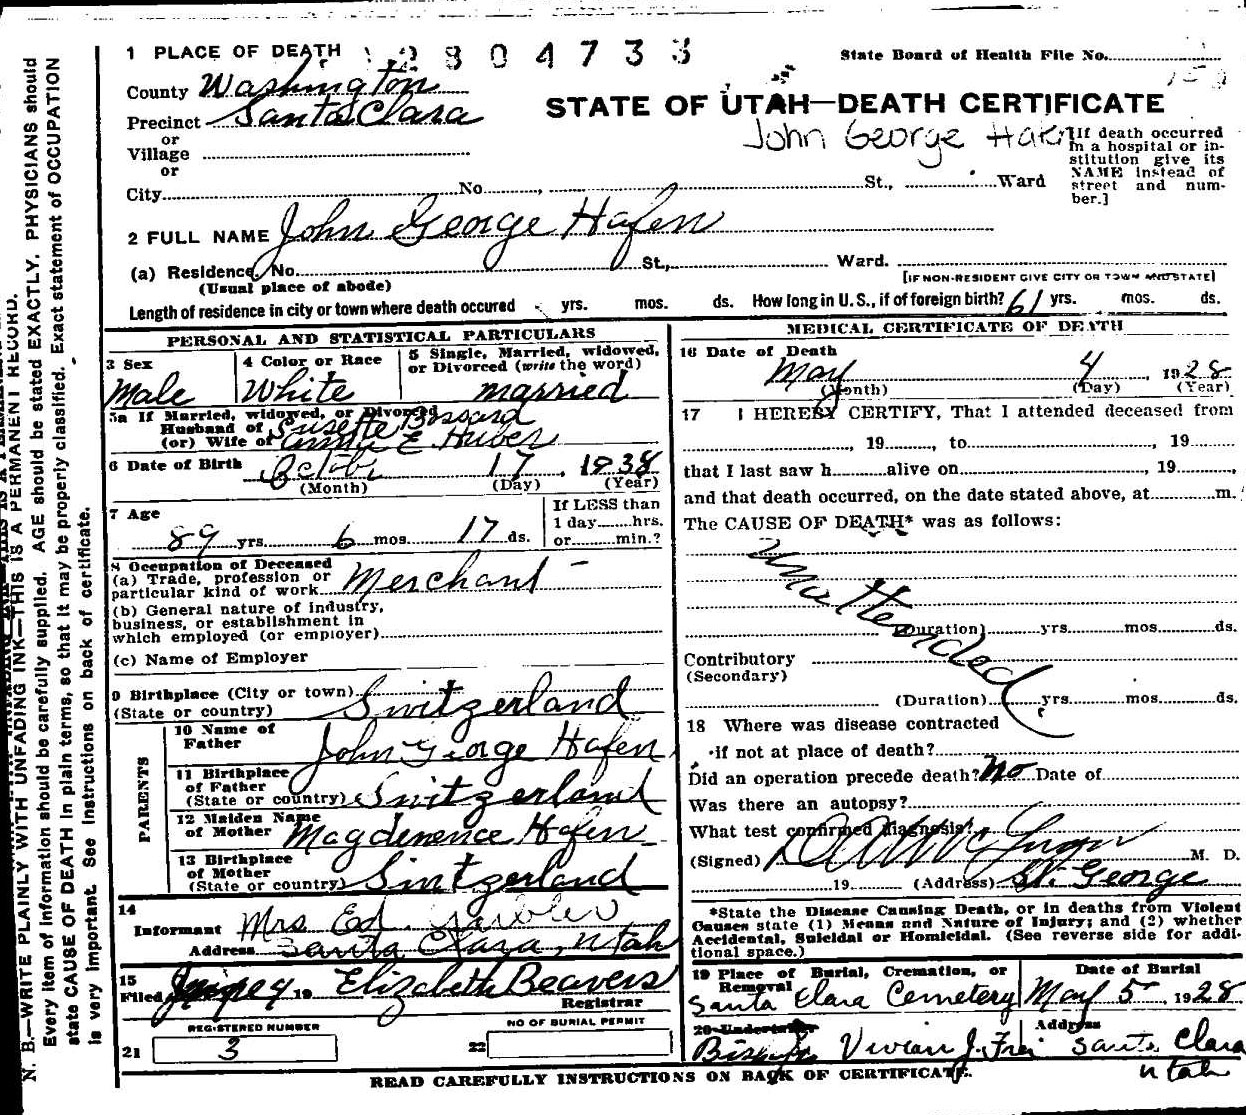 1 PLACE OF DEATH 2804733 State Board of Health File No.
County Washington
STATE OF UTAH—DEATH CERTIFICATE
Precinct Santa Clara
John George Hafen
or
Village
or
City No. St., Ward
[If death occurred
in a hospital or in-
stitution give its
NAME instead of
street and num-
ber.]
2 FULL NAME John George Hafen
(a) Residence. No. St., Ward.
(Usual place of abode) [IF NON-RESIDENT GIVE CITY OR TOWN AND STATE]
Length of residence in city or town where death occured yrs. mos. ds. How long in U. S., if of foreign birth? 61 yrs. mos. ds.
PERSONAL AND STATISTICAL PARTICULARS
3 Sex
Male
4 Color or Race
White
5 Single, Married, widowed,
or Divorced (write the word)
married
5a If Married, widowed, or Divorced
Husband of Susette Bossard
(or) Wife of Anna E Huber
6 Date of Birth October 17, 1838
(Month) (Day) (Year)
7 Age
89 yrs. 6 mos. 17 ds.
If LESS than
1 day hrs.
or min.?
8 Occupation of Deceased
(a) Trade, profession or
particular kind of work Merchant
(b) General nature of industry,
business, or establishment in
which employed (or employer)
(c) Name of Employer
9 Birthplace (City or town)
(State or country) Switzerland
PARENTS
10 Name of
Father John George Hafen
11 Birthplace
of Father
(State or country) Switzerland
12 Maiden Name
of Mother Hafen
13 Birthplace
of Mother
(State or country) Switzerland
14
Informant Mrs Ed Gubler
Address Santa Clara, Utah
15
Filed 19 Elizabeth Beavers
Registrar
REGISTERED NUMBER
21 3
NO OF BURIAL PERMIT
22
MEDICAL CERTIFICATE OF DEATH
16 Date of Death
May 4, 1928
(Month) (Day) (Year)
17 I HEREBY CERTIFY, That I attended deceased from
, 19 , to , 19
that I last saw h alive on , 19 ,
and that death occurred, on the date stated above, at m.
The CAUSE OF DEATH* was as follows:
Unattended
(Duration) yrs. mos. ds.
Contributory
(Secondary)
(Duration) yrs. mos. ds.
18 Where was disease contracted
if not at place of death?
Did an operation precede death? No Date of
Was there an autopsy?
What test confirmed diagnosis?
(Signed) M. D.
19 (Address) St. George
*State the Disease Causing Death, or in deaths from Violent
Causes state (1) Means and Nature of Injury; and (2) whether
Accidental, Suicidal or Homicidal. (See reverse side for addi-
tional space.)
19 Place of Burial, Cremation, or
Removal
Santa Clara Cemetery
Date of Burial
May 5, 1928
20 Undertaker
Bishop Vivian J. Frei
Address
Santa Clara
Utah
READ CAREFULLY INSTRUCTIONS ON BACK OF CERTIFICATE.
N. B.—WRITE PLAINLY WITH UNFADING INK—THIS IS A PERMANENT RECORD.
Every item of information should be carefully supplied. AGE should be stated EXACTLY. PHYSICIANS should
state CAUSE OF DEATH in plain terms, so that it may be properly classified. Exact statement of OCCUPATION
is very important. See instructions on back of certificate.